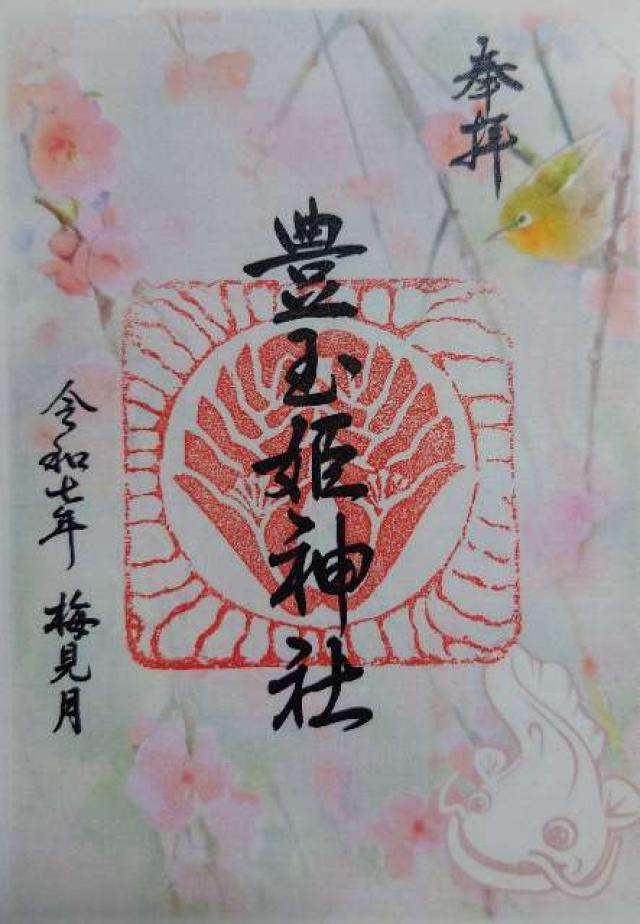 奉拝
豊玉姫神社
令和七年 梅見月